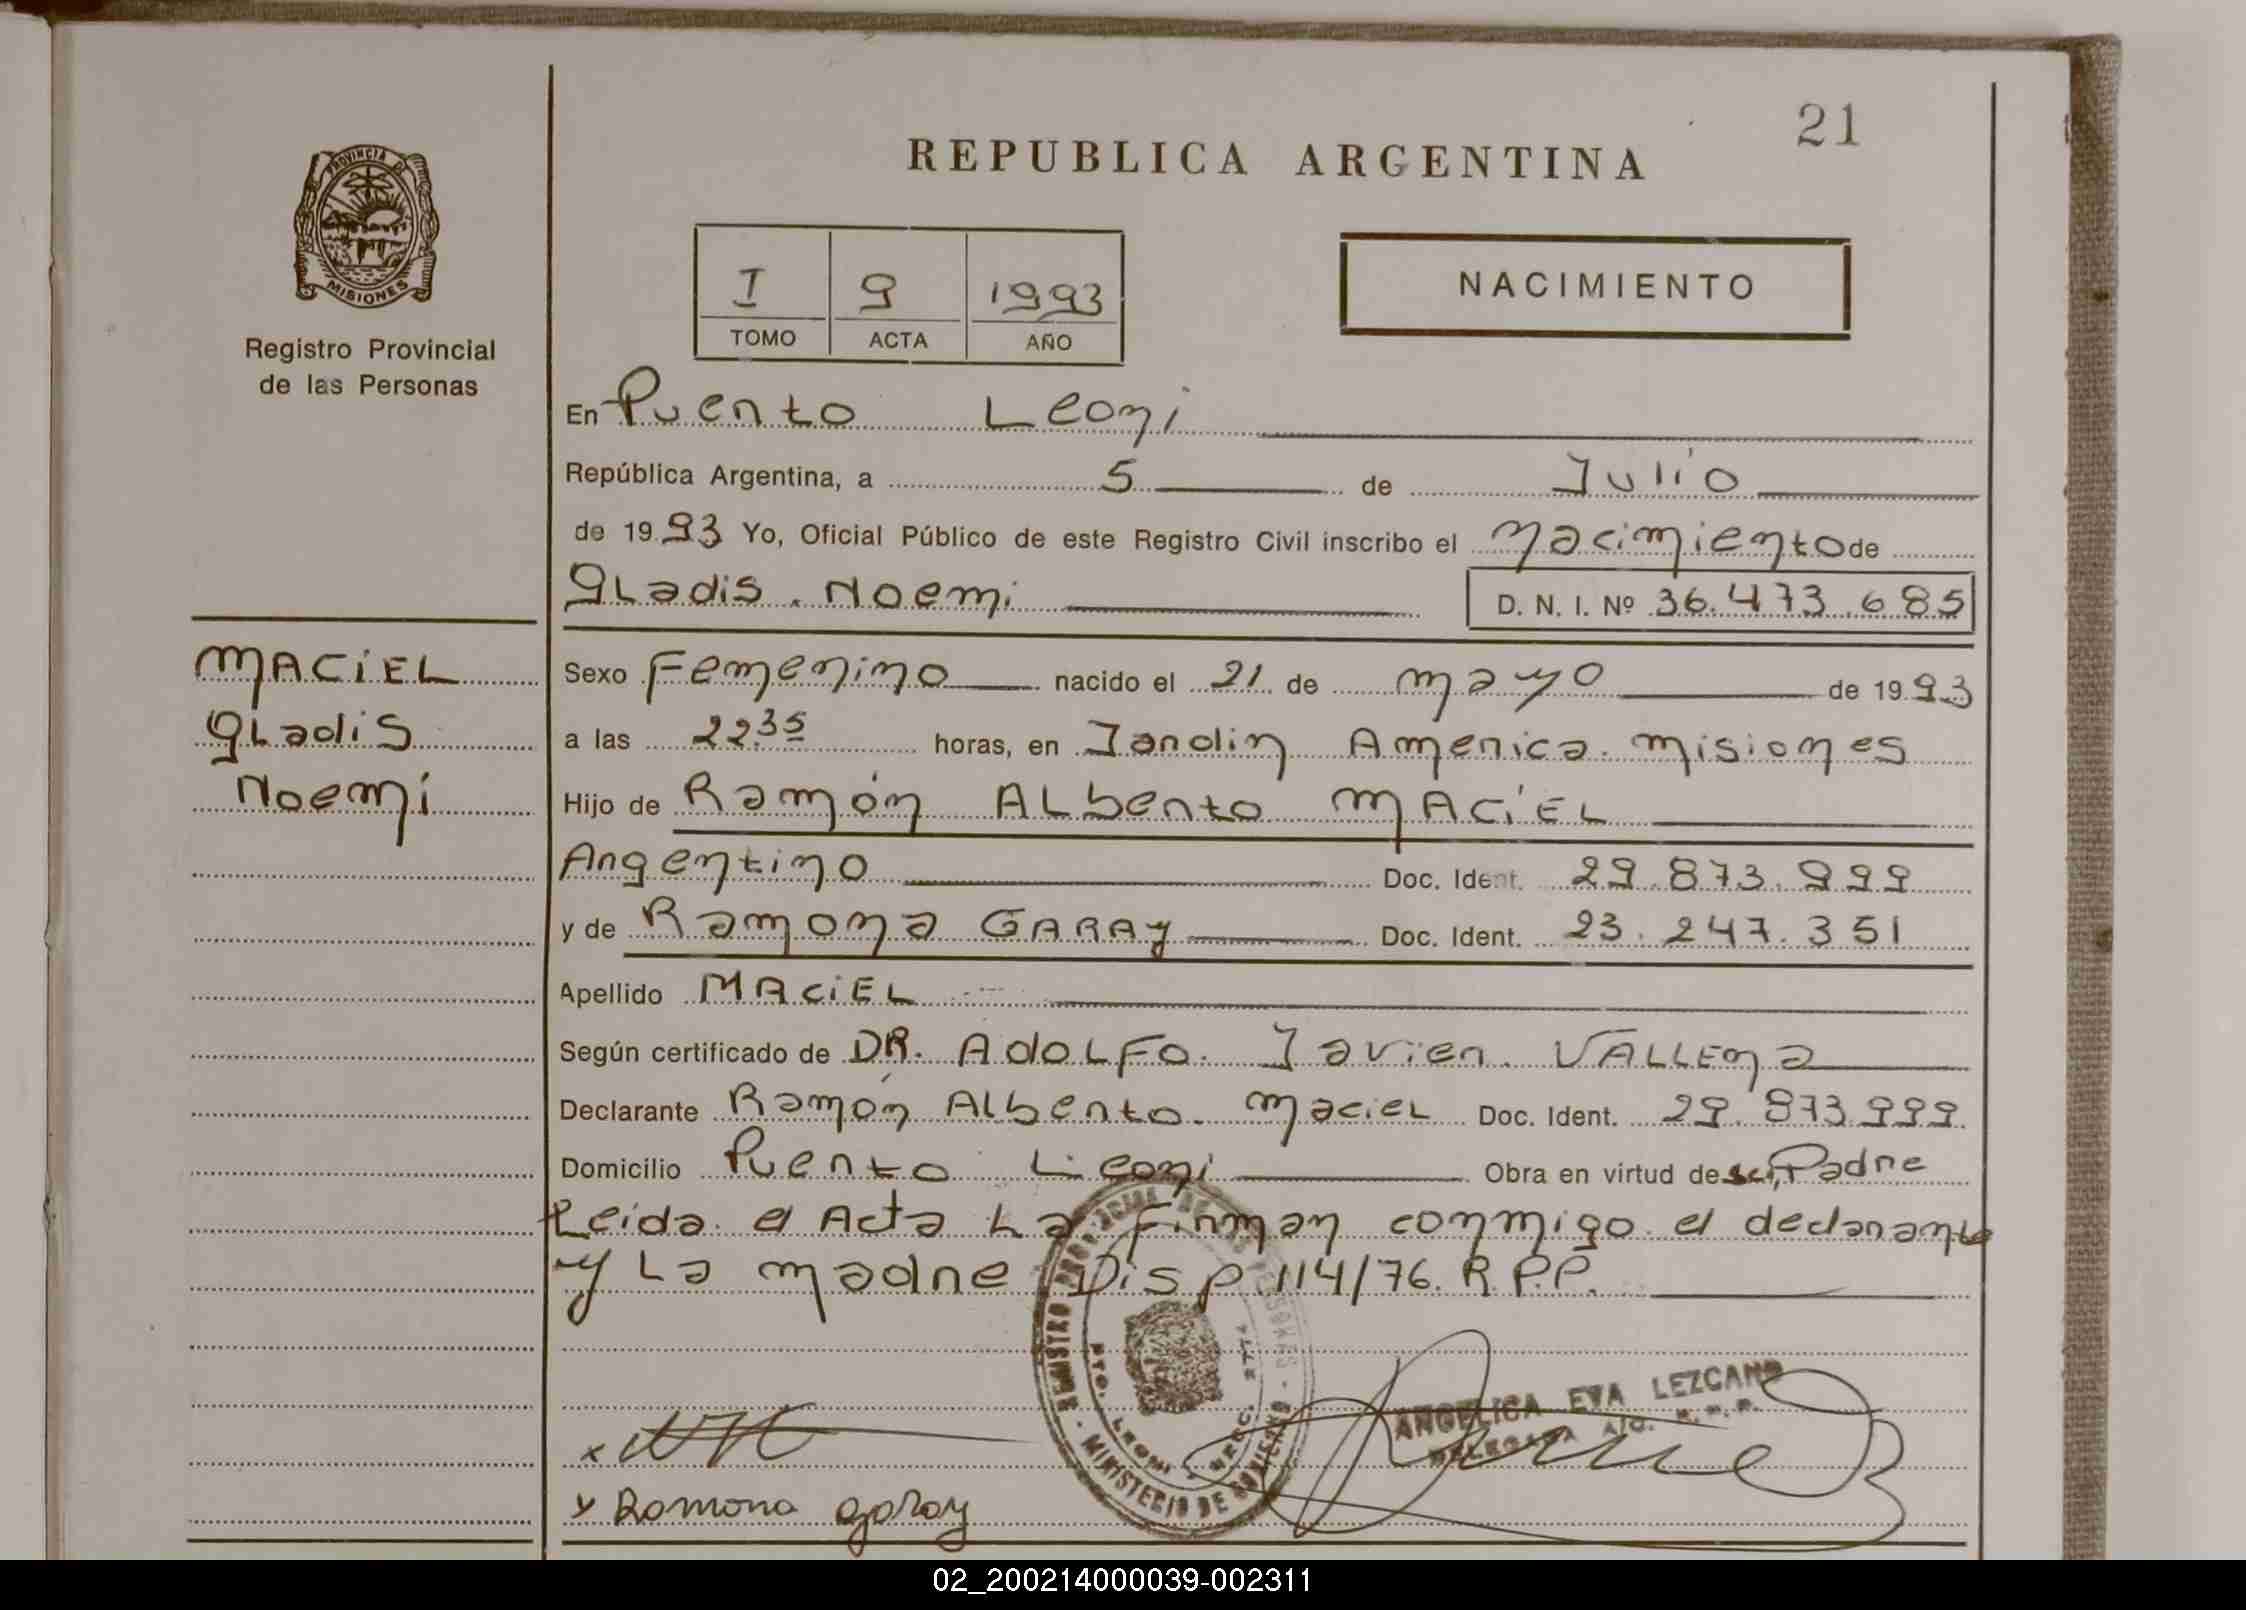 21
REPUBLICA ARGENTINA
PROVINCIA DE
MISIONES
Registro Provincial
de las Personas
I 9 1993
TOMO ACTA AÑO
NACIMIENTO
En Puerto Leoni
República Argentina, a 5 de Julio
de 1993 Yo, Oficial Público de este Registro Civil inscribo el nacimiento de
Gladis Noemi D. N. I. Nº 36.473.685
MACIEL
Gladis
Noemí
Sexo Femenino nacido el 21 de mayo de 1993
a las 22.35 horas, en Jardin America. Misiones
Hijo de Ramón Alberto MACIEL
Argentino Doc. Ident. 29.873.999
y de Ramona GARAY Doc. Ident. 23.247.351
Apellido MACIEL
Según certificado de DR. Adolfo. Javier. VALLEna
Declarante Ramón Alberto. Maciel Doc. Ident. 29.873.999
Domicilio Puerto Leoni Obra en virtud de ser Padre
Leida el Acta La Firman conmigo el declarante
y La madre Disp 114/76. R.P.P.
REGISTRO PROVINCIAL DE LAS PERSONAS - MINISTERIO DE GOBIERNO -
PTO. LEONI
ANGELICA EVA LEZCANO
DELEGADA A/C. R. P. P.
x
x Ramona garay
02_200214000039-002311